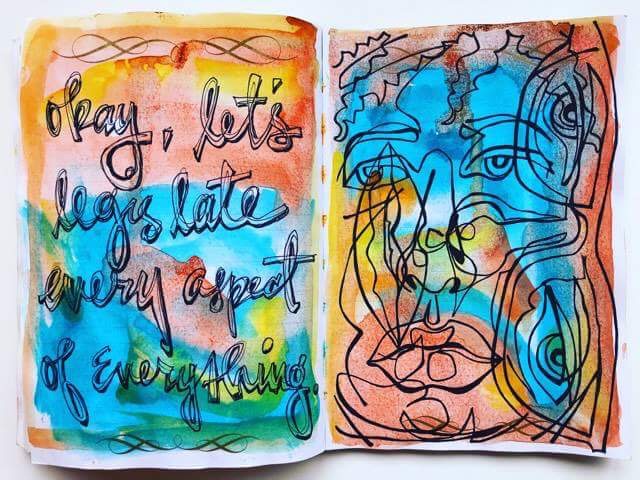 okay, let's
legis late
every aspect
of Everything.